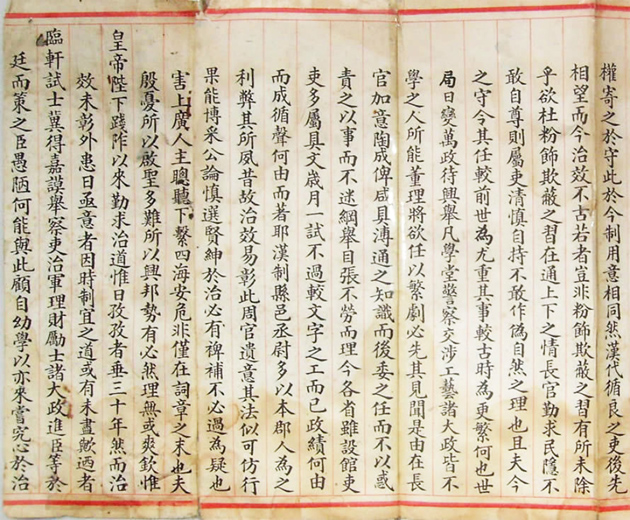 權寄之於守此於今制用意相同然漢代循良之吏後先
相望而今治效不古若者豈非粉飾欺蔽之習有所未除
乎欲杜粉飾欺蔽之習在通上下之情長官勤求民隱不
敢自尊則屬吏清慎自持不敢作偽自然之理也且夫今
之守令其任較前世為尤重其事較古時為更繁何也世
局日變萬政待興舉凡學堂警察交涉工藝諸大政皆不
學之人所能董理將欲任以繁劇必先其見聞是由在長
官加意陶成俾咸具溥通之知識而後委之任而不以惑
責之以事而不迷綱舉目張不勞而理今各省雖設館吏
吏多屬具文歲月一試不過較文字之工而已政績何由
而成循聲何由而者耶漢制縣邑丞尉多以本郡人為之
利弊其所夙昔故治效易彰此周官遺意其法似可仿行
果能博采公論慎選賢紳於治必有裨補不必過為疑也
害上廣人主聰聽下繫四海安危非僅在詞章之末也夫
殷憂所以啟聖多難所以興邦勢有必然理無或爽欽惟
皇帝陛下踐阼以來勤求治道惟日孜孜者垂三十年然而治
效未彰外患日亟意者因時制宜之道或有未盡歟迺者
臨軒試士冀得嘉謨舉察吏治軍理財勵士諸大政進臣等於
廷而策之臣愚陋何能與此顧自幼學以亦來嘗究心於治